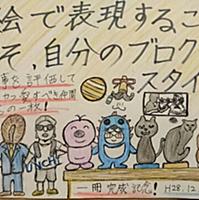 絵で表現するこ
そ,自分のブログ
スタイ
事を,評価して
愛すべき仲間
の一枚!
一冊完成記念! H28.12